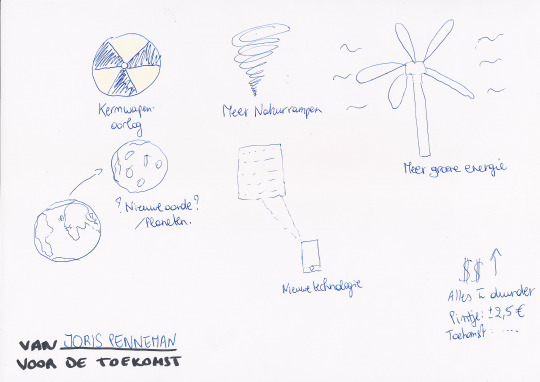 Kernwapen-
oorlog
Meer Natuurrampen
Meer groene energie
? Nieuwe aarde?
/Planeten.
Nieuwe technologie
$$ ↑
Alles duurder
Pintje: ±2,5 €
Toekomst: ....
VAN JORIS PENNEMAN
VOOR DE TOEKOMST